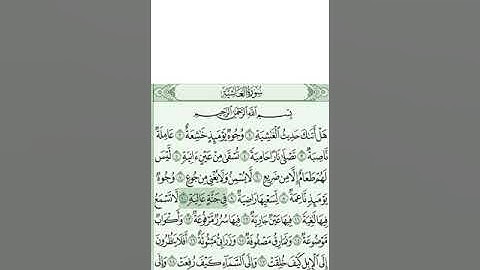 سُورَةُ الغَاشِيَةِ
بِسْمِ اللَّهِ الرَّحْمَٰنِ الرَّحِيمِ
هَلْ أَتَىٰكَ حَدِيثُ ٱلْغَٰشِيَةِ ١ وُجُوهٌ يَوْمَئِذٍ خَٰشِعَةٌ ٢ عَامِلَةٌ
نَّاصِبَةٌ ٣ تَصْلَىٰ نَارًا حَامِيَةً ٤ تُسْقَىٰ مِنْ عَيْنٍ ءَانِيَةٍ ٥ لَّيْسَ
لَهُمْ طَعَامٌ إِلَّا مِن ضَرِيعٍ ٦ لَّا يُسْمِنُ وَلَا يُغْنِي مِن جُوعٍ ٧ وُجُوهٌ
يَوْمَئِذٍ نَّاعِمَةٌ ٨ لِّسَعْيِهَا رَاضِيَةٌ ٩ فِي جَنَّةٍ عَالِيَةٍ ١٠ لَّا تَسْمَعُ
فِيهَا لَٰغِيَةً ١١ فِيهَا عَيْنٌ جَارِيَةٌ ١٢ فِيهَا سُرُرٌ مَّرْفُوعَةٌ ١٣ وَأَكْوَابٌ
مَّوْضُوعَةٌ ١٤ وَنَمَارِقُ مَصْفُوفَةٌ ١٥ وَزَرَابِيُّ مَبْثُوثَةٌ ١٦ أَفَلَا يَنظُرُونَ
إِلَى ٱلْإِبِلِ كَيْفَ خُلِقَتْ ١٧ وَإِلَى ٱلسَّمَآءِ كَيْفَ رُفِعَتْ ١٨ وَإِلَى